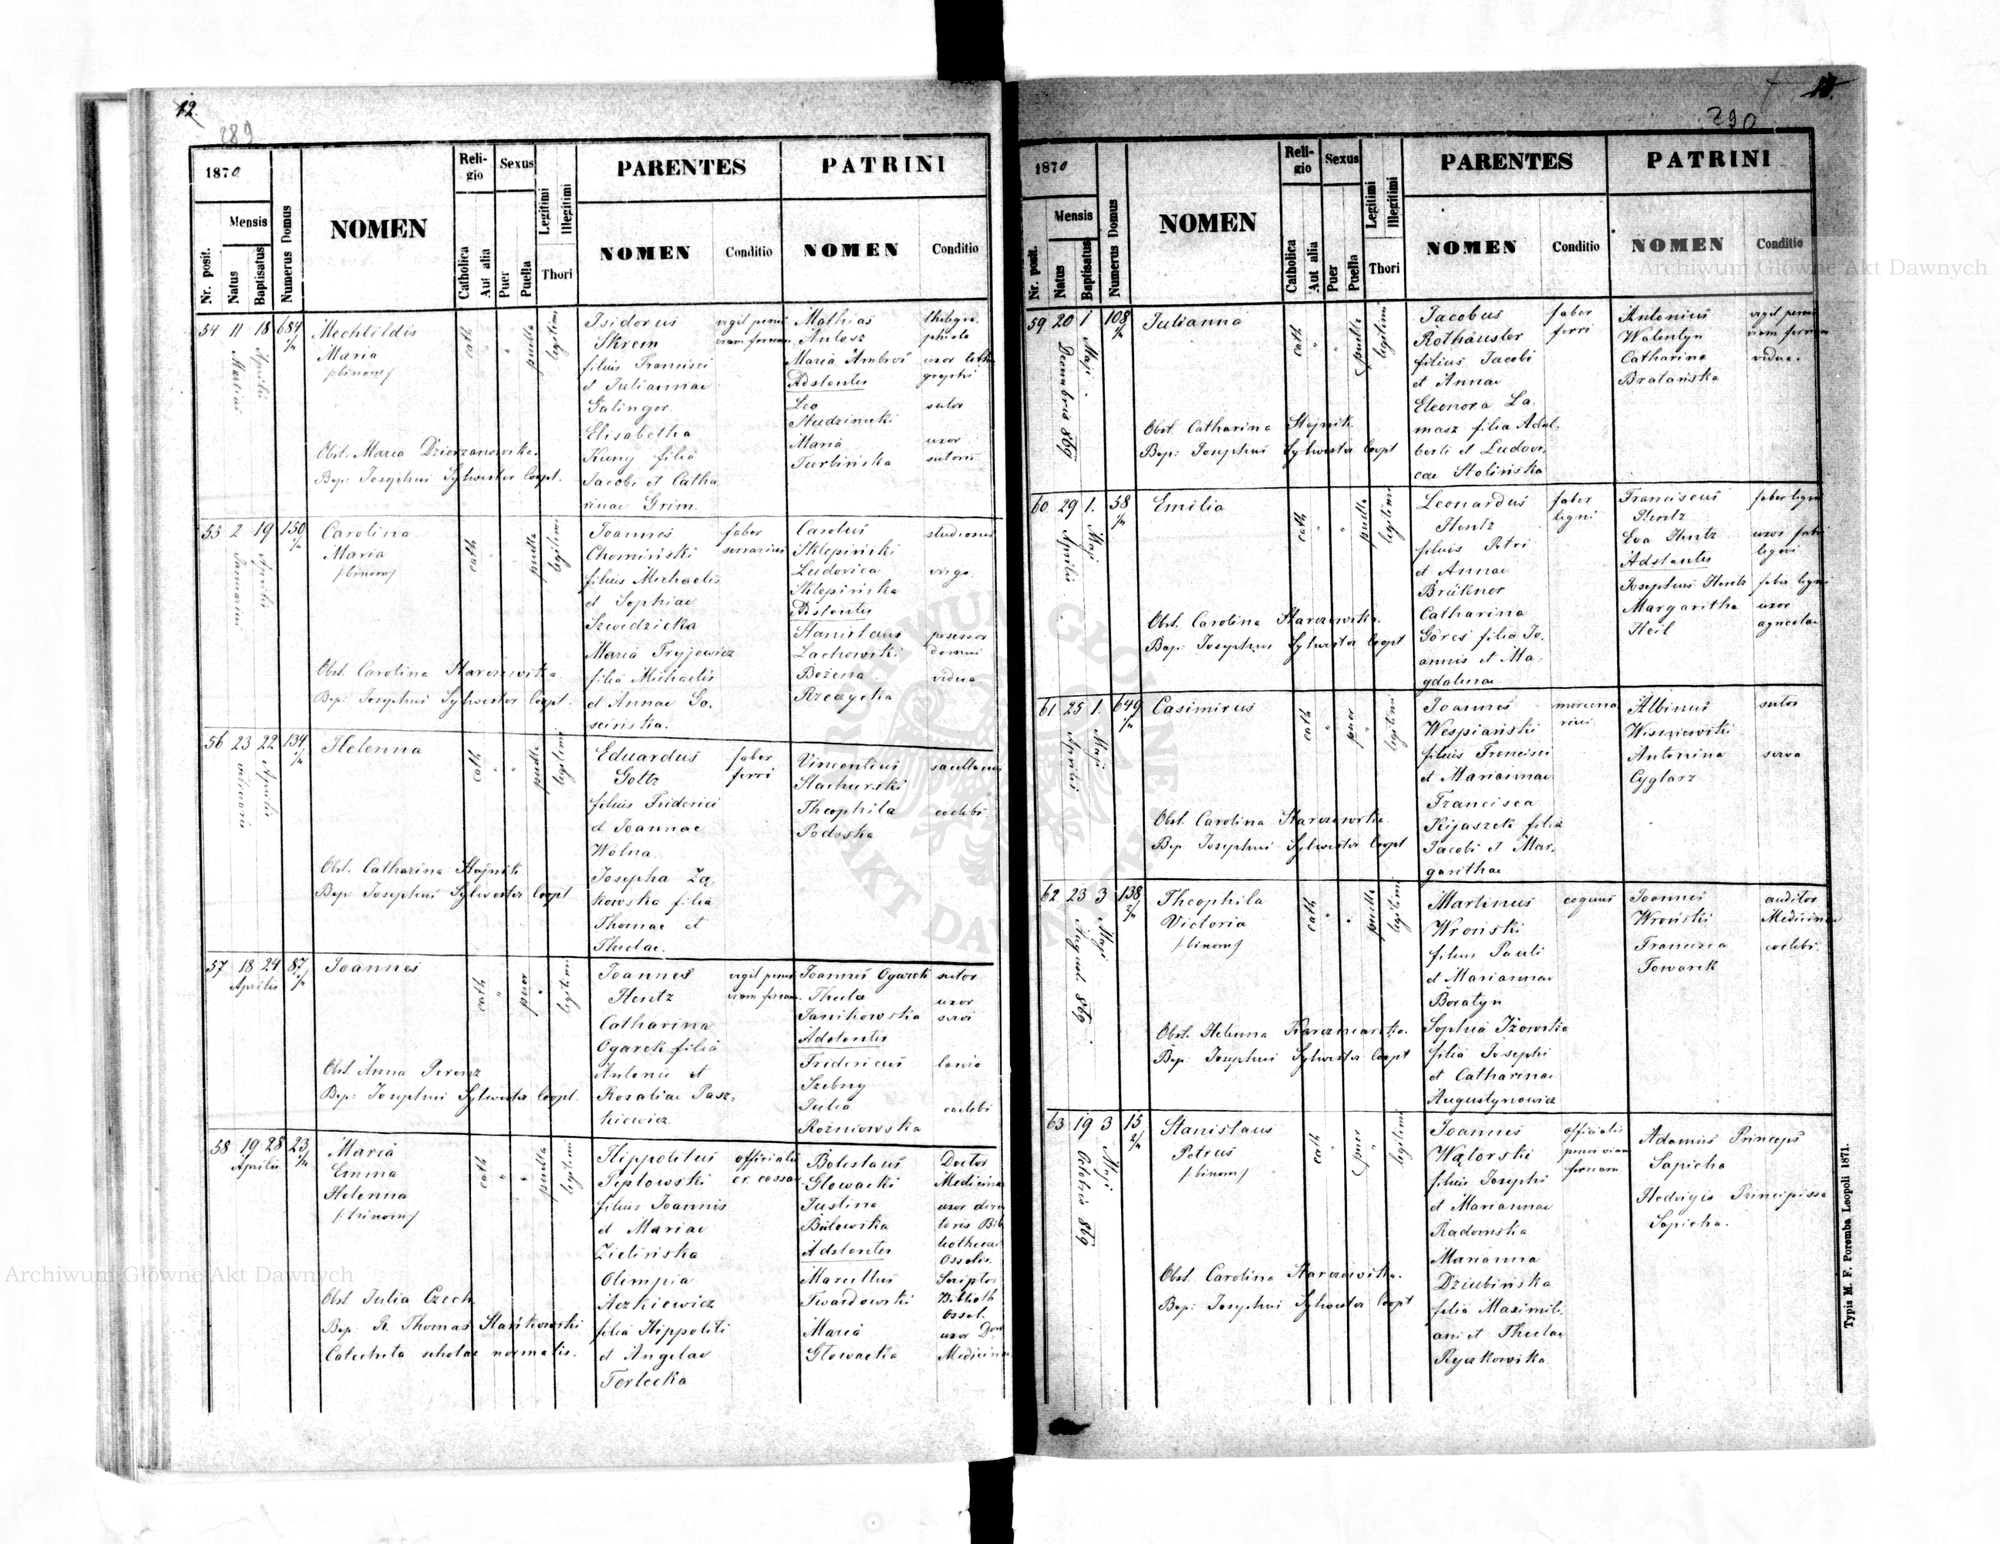 12.
289
1870
Nr. posit.
Mensis
Natus
Baptisatus
Numerus Domus
NOMEN
Reli-
gio
Catholica
Aut alia
Sexus
Puer
Puella
Legitimi
Illegitimi
Thori
PARENTES
NOMEN
Conditio
PATRINI
NOMEN
Conditio
54 11 Martius 18 Aprilis 684
Mechtildis
Maria
/binom/
Obst. Maria Dzierzanowska.
Bap: Josephus Sylwester Coopt.
cath
puella
legitimi
Isidorus
Skrem
filius Francisci
et Juliannae
Galinger
Elisabetha
Kuny filia
Jacobi et Catha
rinae Grim.
Mathias
Antosz
Maria Ambroś
Adstantes
Leo
Studzinski
Maria
Turbińska
sutor
uxor
sutoris
55 2 Januarius 19 Aprilis 150
Carolina
Maria
/binom/
Obst. Carolina Starczewska.
Bap: Josephus Sylwester Coopt.
cath
puella
legitimi
Joannes
Chomiński
filius Michaelis
et Sophiae
Szwidzicka
Maria Fryjewicz
filia Michaelis
et Annae Go.
sciniska.
faber
serrarius
Carolus
Sklepiński
Ludovica
Sklepińska
Adstantes
Stanislaus
Lachowski
Bożena
Rzeczycka
studiosus
virgo
possessor
domus
vidua
56 23 22 Aprilis 134
Helenna
Obst. Catharina Stojnik
Bap: Josephus Sylwester Coopt
cath
puella
legitimi
Eduardus
Goltz
filius Friderici
et Joannae
Wolna
Josepha Zą.
kowska filia
Thomae et
Theclae.
faber
ferri
Vincentius
Stachurski
Theophila
Podoska
coelebs
57 18 24 Aprilis 87
Joannes
Obst. Anna Perenz
Bap: Josephus Sylwester Coopt.
cath
puer
legitimi
Joannes
Hentz
Catharina
Ogarek filia
Antonii et
Rosaliae Pasz-
kiewicz
Joannes Ogarek sutor
Thecla uxor
Janikowska servi
Adstantes
Fridericus lanio
Szebny
Julia coelebs
Rożniowska
58 19 28 Aprilis 23
Maria
Emma
Helenna
/trinom/
Obst. Julia Czech
Bap. R. Thomas Stańkowski
Catecheta scholae normalis.
cath
puella
legitimi
Hippolitus
Teplowski
filius Joannis
et Mariae
Zielińska
Olimpia
Aczkiewicz
filia Hippoliti
et Angelae
Terlecka
officialis
Boleslaus
Glowacki
Justina
Bielowska
Adstantes
Marcellus
Twardowski
Maria
Glowacka
Doctor
Medicinae
uxor dire
ctoris Bib
liothecae
Ossolin.
Scriptor
Biblioth
Ossol.
uxor Doct
Medicinae
290
1870
Nr. posit.
Mensis
Natus
Baptisatus
Numerus Domus
NOMEN
Reli-
gio
Catholica
Aut alia
Sexus
Puer
Puella
Legitimi
Illegitimi
Thori
PARENTES
NOMEN
Conditio
PATRINI
NOMEN
Conditio
59 20 Decembris 869 1 Maji 108
Julianna
Obst. Catharina Stojnik.
Bap: Josephus Sylwester Coopt
cath
puella
legitimi
Jacobus
Rothäusler
filius Jacobi
et Annae
Eleonora La.
masz filia Adal.
berti et Ludovi.
cae Stolińska
faber
ferri
Antonius
Walentyn
Catharina
Bratańska
vidua.
60 29 Aprilis 1. Maj 58
Emilia
Obst. Carolina Starczewska.
Bap: Josephus Sylwester Coopt
cath
puella
legitimi
Leonardus
Hentz
filius Petri
et Annae
Brükner
Catharina
Göres filia Jo.
annis et Ma.
gdalenae
faber
ligni
Franciscus
Hentz
Eva Hentz
Adstantes
Josephus Hentz
Margaritha
Heil
faber ligni
uxor fabri
ligni
faber ligni
uxor
agricolae
61 25 Aprilis 1. Maji 649
Casimirus
Obst. Carolina Starczewska.
Bap. Josephus Sylwester Coopt
cath
puer
legitimi
Joannes
Wespiański
filius Francisci
et Mariannae
Francisca
Kijaszek filia
Jacobi et Mar.
garithae
mercena
rius
Albinus
Wiszniewski
Antonina
Cyglarz
sutor
serva
62 23 August. 869 3 Maji 138
Theophila
Victoria
/binom/
Obst. Helenna Karczmarska.
Bap: Josephus Sylwester Coopt
cath
puella
legitimi
Martinus
Wroński
filius Pauli
et Mariannae
Boratyn
Sophia Iżowska
filia Josephi
et Catharinae
Augustynowicz
coquus
Joannes
Wroński
Francisca
Towarek
auditor
Medicinae
coelebs.
63 19 Octobris 869 3 Maji 15
Stanislaus
Petrus
/binom/
Obst. Carolina Starczewska.
Bap: Josephus Sylwester Coopt
cath
puer
legitimi
Joannes
Wątorski
filius Josephi
et Mariannae
Radomska
Marianna
Dziubińska
filia Maximili.
ani et Theclae
Ryczkowska
officialis
penes viam
ferream
Adamus Princeps
Sapieha
Hedvigis Principissa
Sapieha.
Typis M. F. Poremba Leopoli 1871.
Archiwum Główne Akt Dawnych
Archiwum Główne Akt Dawnych
ARCHIWUM GŁÓWNE AKT DAWNYCH